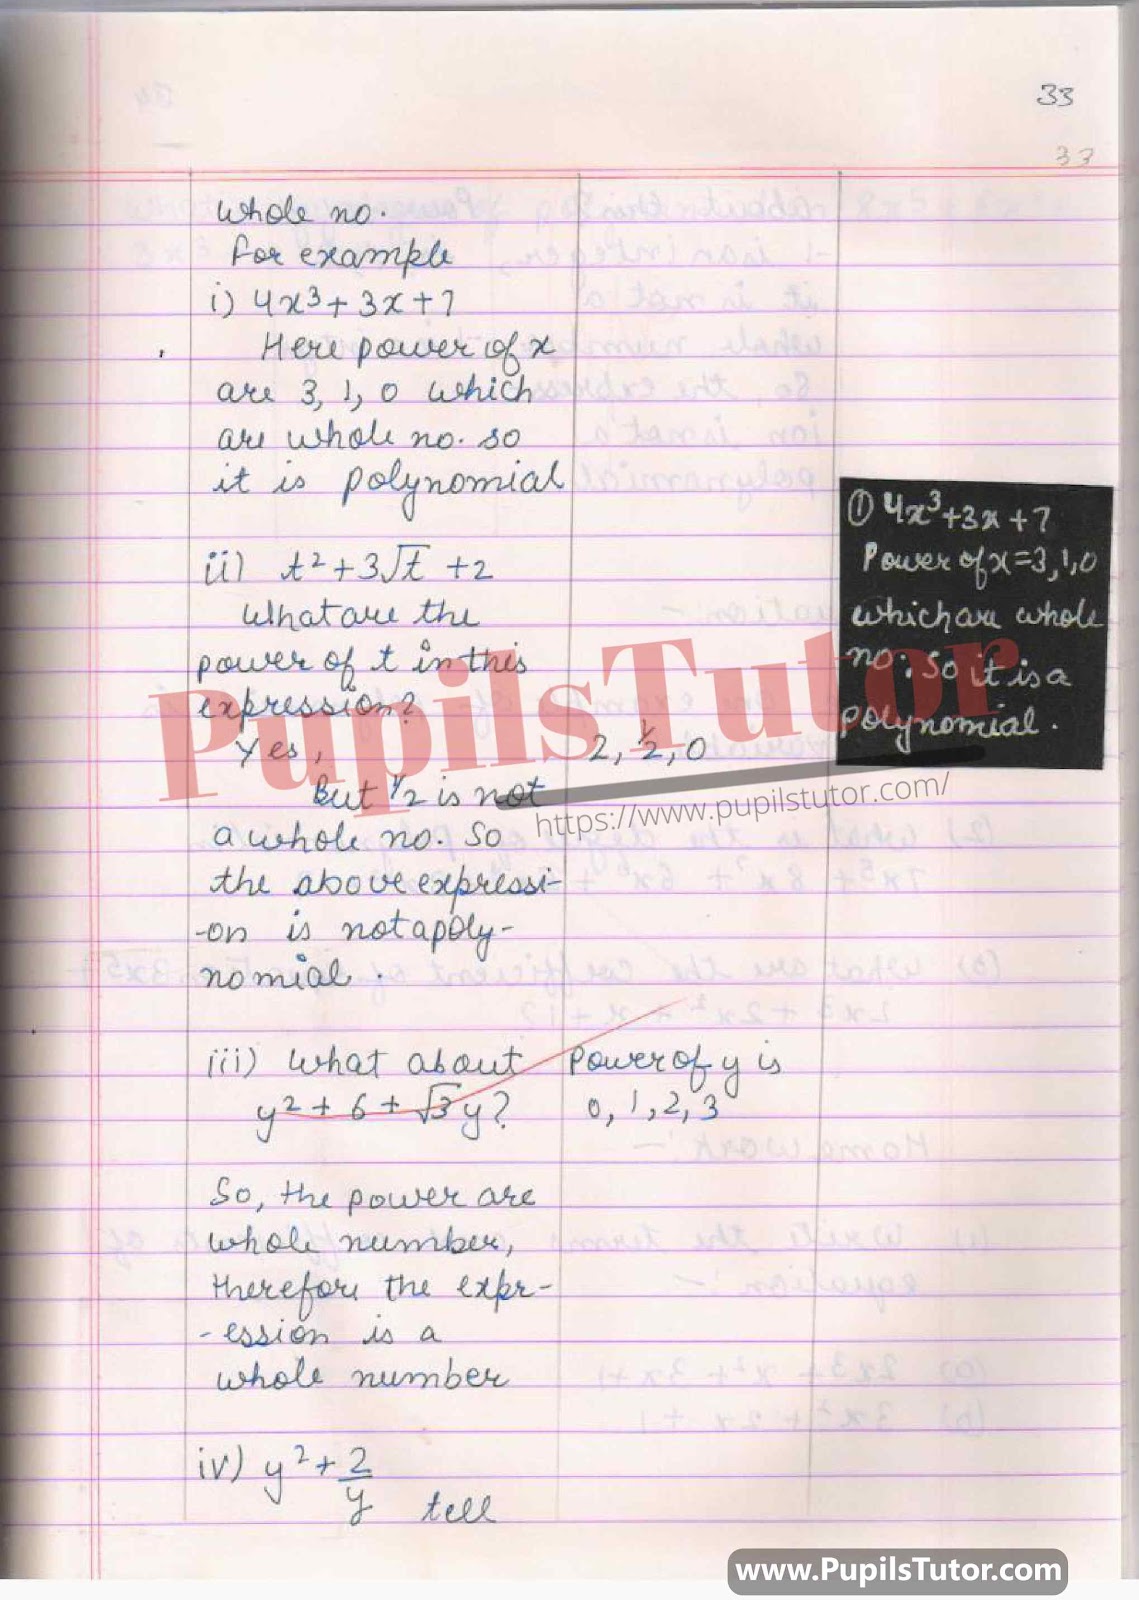 33
33
whole no.
For example
i) 4x³ + 3x + 7
Here power of x
are 3, 1, 0 which
are whole no. so
it is polynomial
① 4x³+3x+7
Power of x=3,1,0
which are whole
no. So it is a
polynomial.
ii) t² + 3√t + 2
What are the
power of t in this
expression?
Yes, 2, ½, 0
But ½ is not
a whole no. So
the above expressi-
-on is not a poly-
nomial.
PupilsTutor
https://www.pupilstutor.com/
iii) What about Power of y is
y² + 6 + √3 y? 0, 1, 2, 3
So, the power are
whole number,
therefore the expr-
-ession is a
whole number
iv) y² + 2/y tell
www.PupilsTutor.com